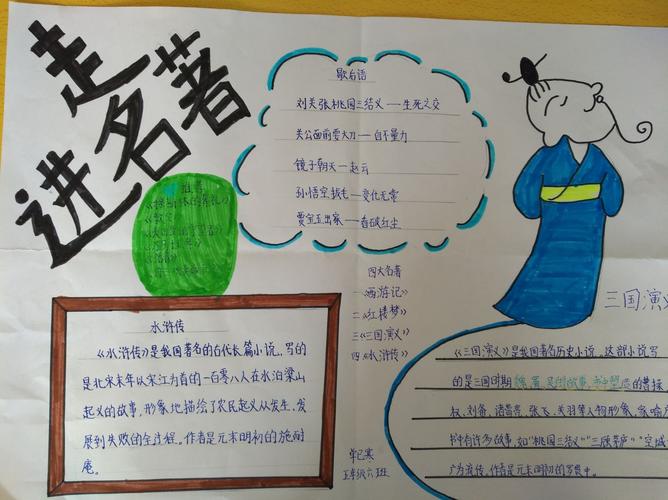 走进名著
歇后语
刘关张桃园三结义——生死之交
关公面前耍大刀——自不量力
镜子朝天—赵云
孙悟空拔毛—变化无常
贾宝玉出家——看破红尘
四大名著
一《西游记》
二《红楼梦》
三《三国演义》
四《水浒传》
水浒传
《水浒传》是我国著名的古代长篇小说。写的
是北宋末年以宋江为首的一百零八人在水泊梁山
起义的故事,形象地描绘了农民起义从发生、发
展到失败的全过程。作者是元末明初的施耐
庵。
五年级六班
三国演义
《三国演义》是我国著名历史小说,这部小说写
的是三国时期魏、蜀、吴的故事,书中塑造的曹操
权、刘备、诸葛亮、张飞、关羽等人物形象,家喻户
书中有许多故事,如"桃园三结义""三顾茅庐""空城
广为流传,作者是元末明初的罗贯中。